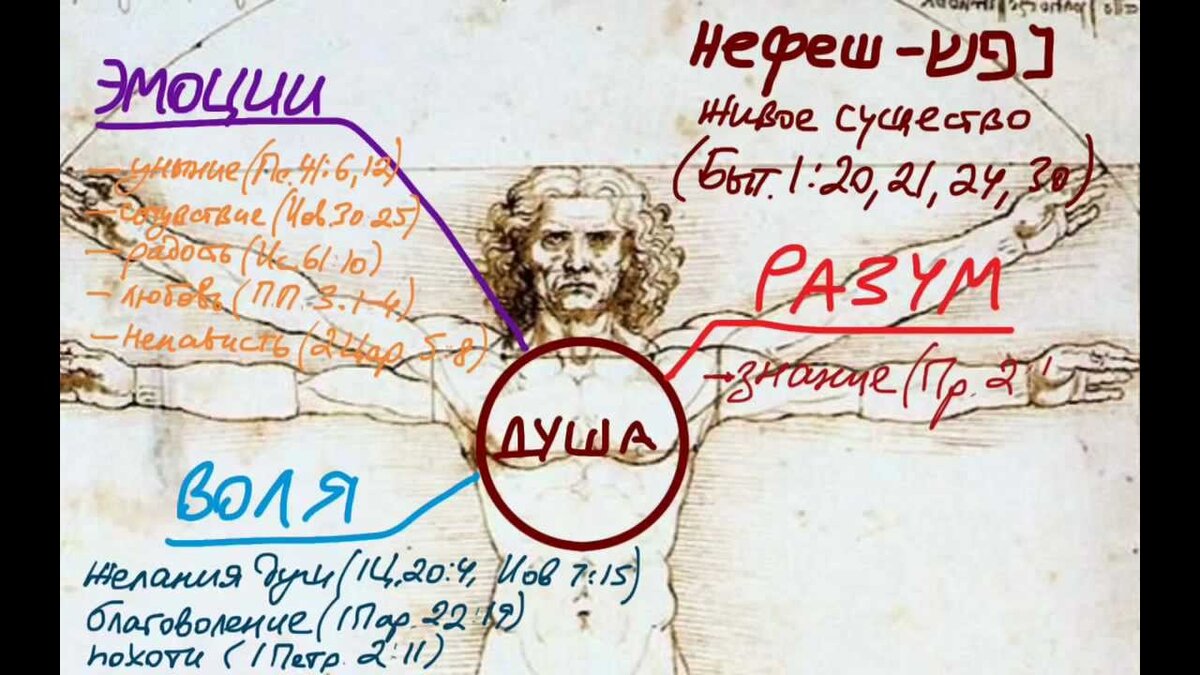 ЭМОЦИИ
- уныние (Пс. 41:6, 12)
- сочувствие (Иов. 30:25)
- радость (Ис. 61:10)
- любовь (П.П. 3:1-4)
- ненависть (2 Цар. 5:8)
Нефеш - נפש
живое существо
(Быт. 1:20, 21, 24, 30)
РАЗУМ
→ знание (Пр. 2
ДУША
ВОЛЯ
желания души (1Ц, 20:4, Иов 7:15)
благоволение (1 Пар. 22:19)
похоти (1 Петр. 2:11)